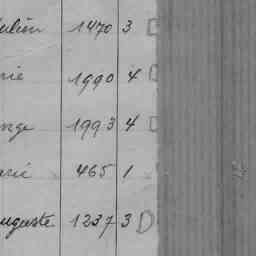 ulien 1470 3 D
rie 1990 4 D
orge 1993 4 D
arie 465 1
uguste 1237 3 D